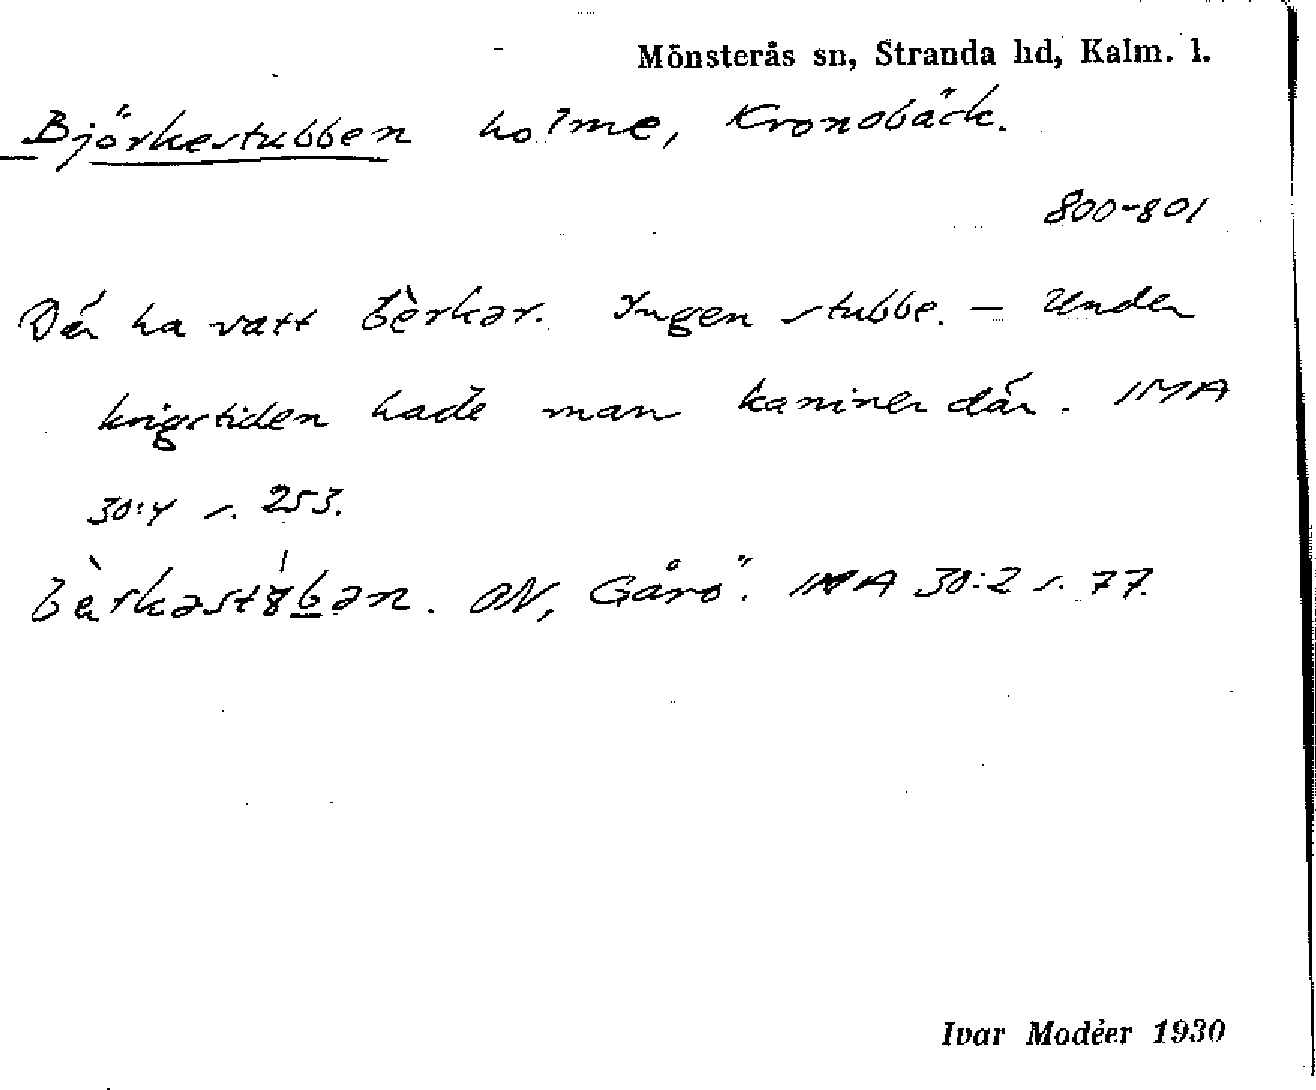 Mönsterås sn, Stranda hd, Kalm. l.
Björkestubben holme, Kronobäck.
800-801
Där ha vatt bèrkər. Ingen stubbe. — Under
krigstiden hade man kaniner där. IMA
30:4 s. 253.
bèrkəst8bən. ON, Gårö. IMA 30:2 s. 77.
Ivar Modéer 1930